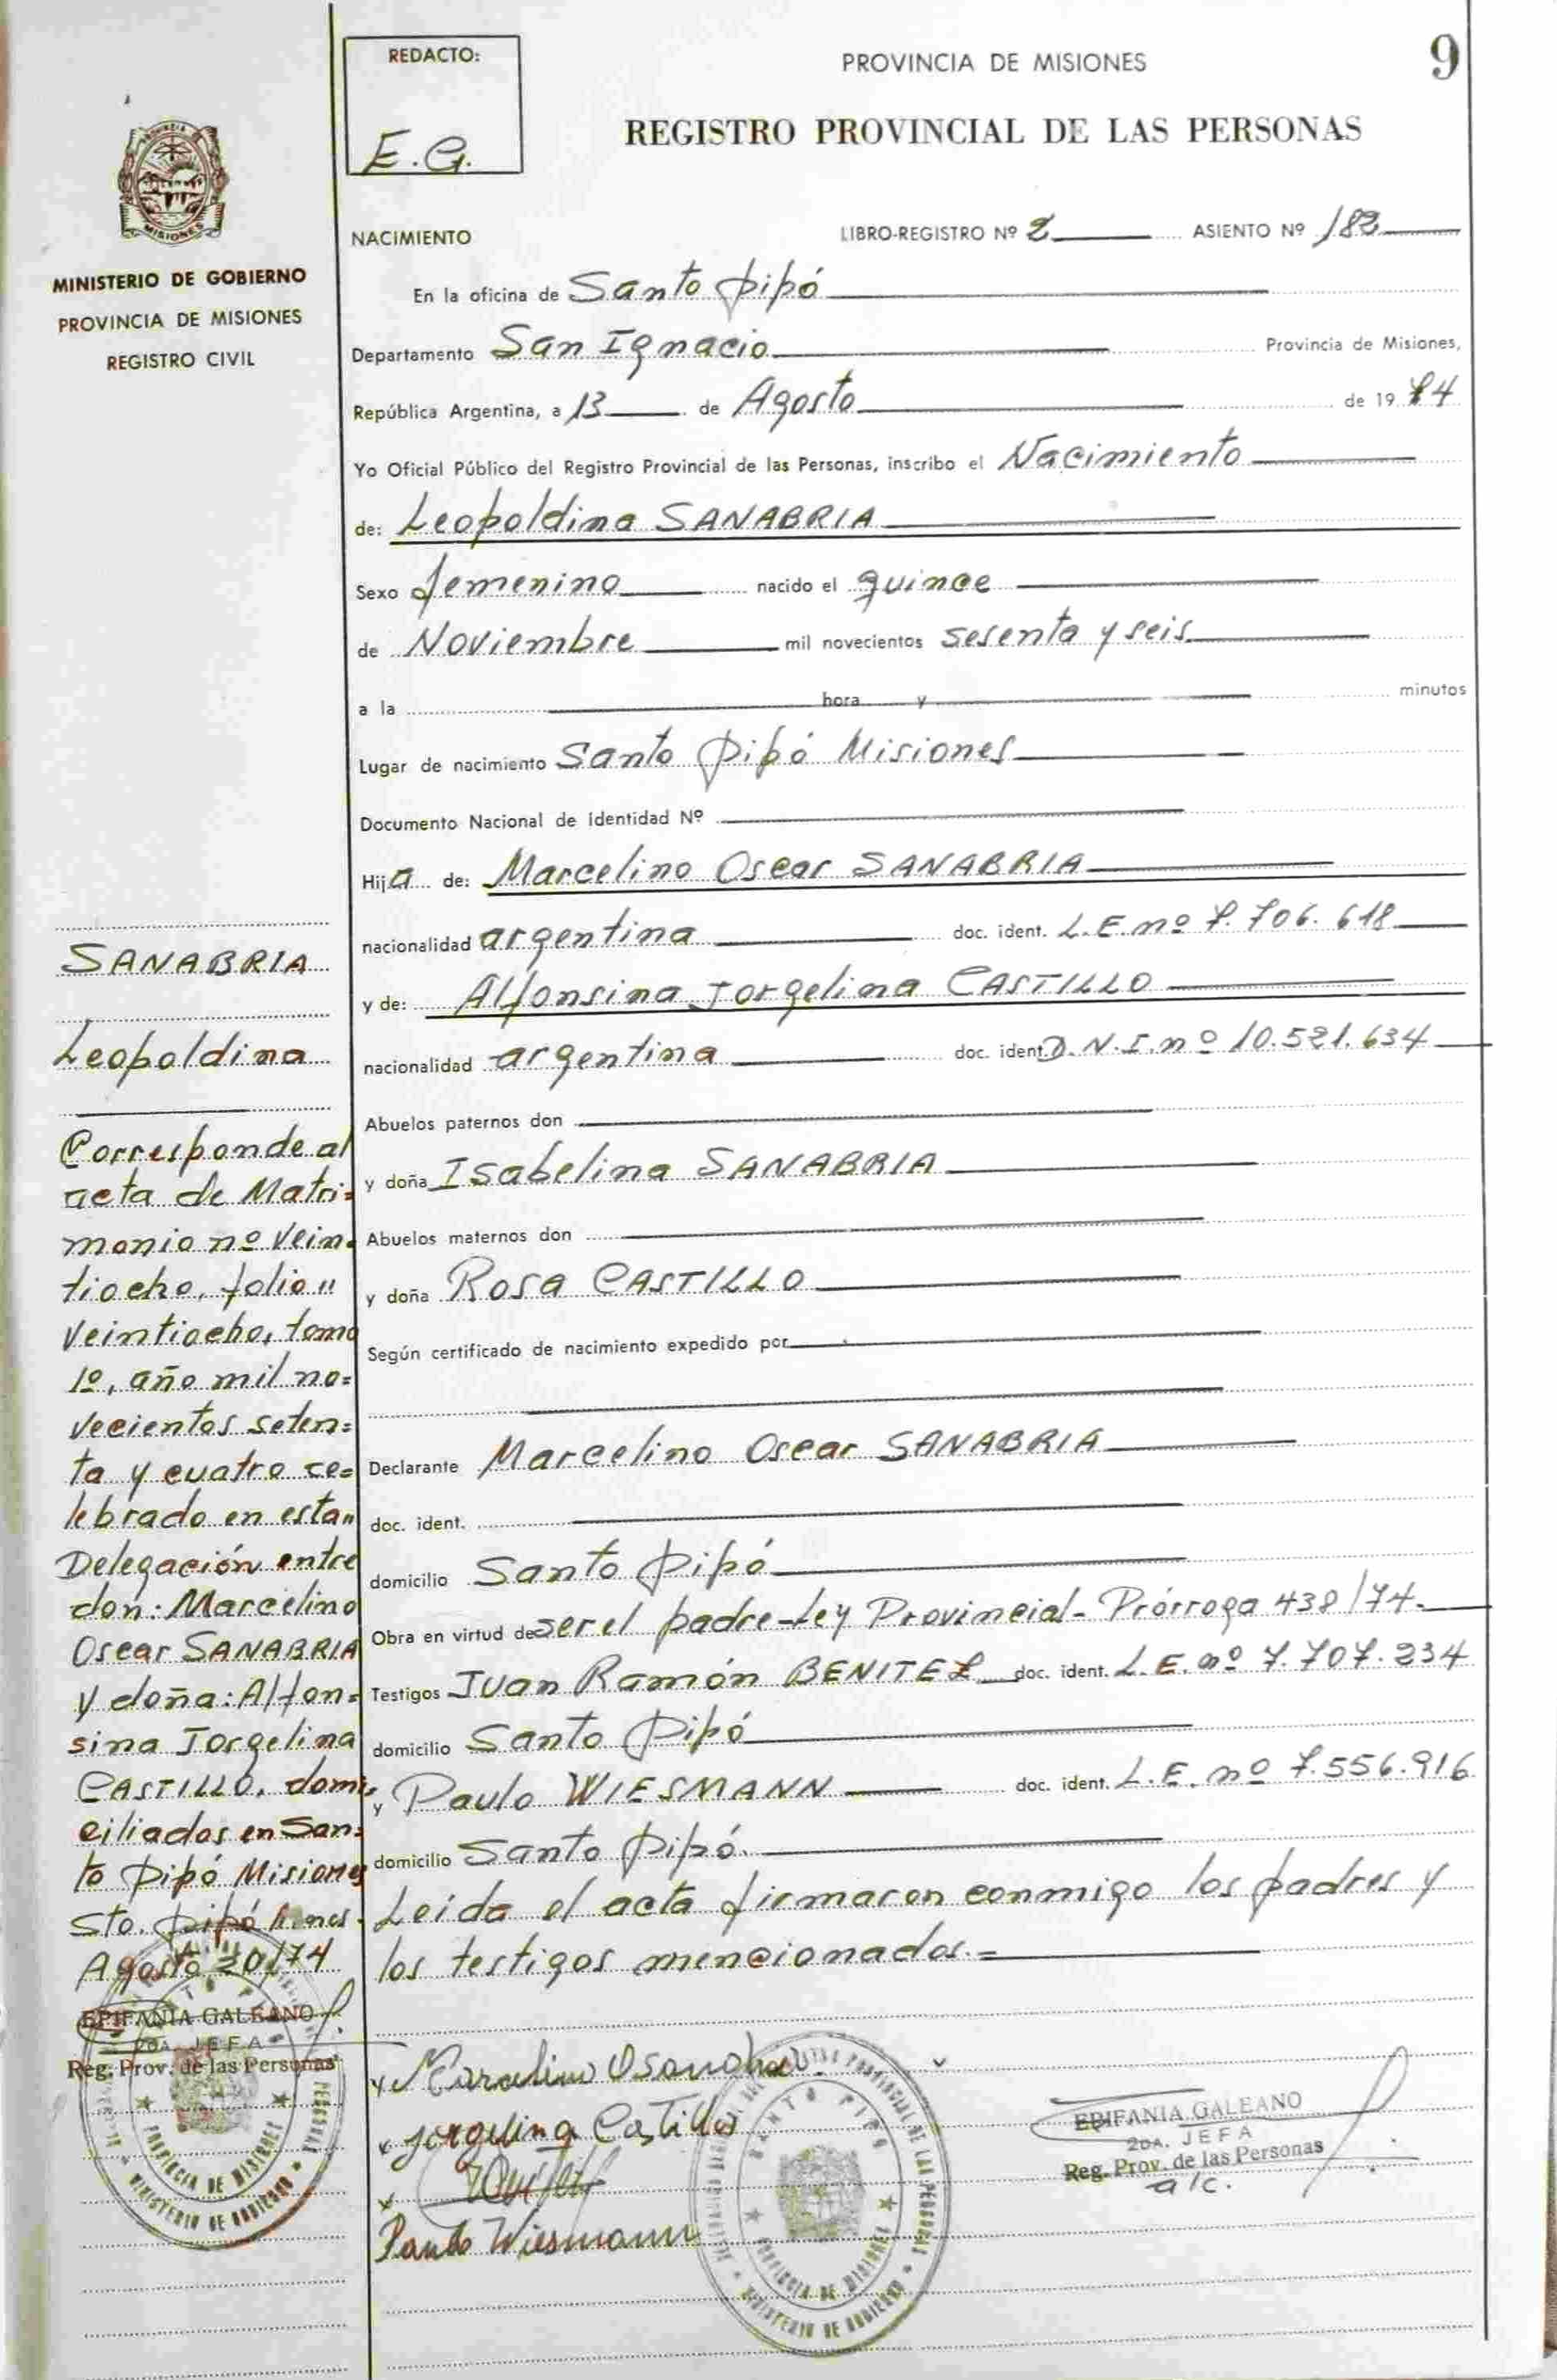 REDACTO:
E.G.
PROVINCIA DE MISIONES
9
REGISTRO PROVINCIAL DE LAS PERSONAS
MISIONES
MINISTERIO DE GOBIERNO
PROVINCIA DE MISIONES
REGISTRO CIVIL
NACIMIENTO
LIBRO-REGISTRO Nº 2 ASIENTO Nº 182
En la oficina de Santo Pipó
Departamento San Ignacio Provincia de Misiones,
República Argentina, a 13 de Agosto de 1974
Yo Oficial Público del Registro Provincial de las Personas, inscribo el Nacimiento
de: Leopoldina SANABRIA
Sexo femenino nacido el quince
de Noviembre mil novecientos sesenta y seis
a la hora y minutos
Lugar de nacimiento Santo Pipó Misiones
Documento Nacional de Identidad Nº
Hija de: Marcelino Oscar SANABRIA
nacionalidad argentina doc. ident. L.E. nº 7.706.618
y de: Alfonsina Jorgelina CASTILLO
nacionalidad argentina doc. ident. D.N.I. nº 10.521.634
Abuelos paternos don
y doña Isabelina SANABRIA
Abuelos maternos don
y doña Rosa CASTILLO
Según certificado de nacimiento expedido por
Declarante Marcelino Oscar SANABRIA
doc. ident.
domicilio Santo Pipó
Obra en virtud de ser el padre-Ley Provincial- Prórroga 438/74.
Testigos Juan Ramón BENITEZ doc. ident. L.E. nº 7.707.234
domicilio Santo Pipó
y Paulo WIESMANN doc. ident. L.E. nº 7.556.916
domicilio Santo Pipó.
Leida el acta firmaron conmigo los padres y
los testigos mencionados.=
SANABRIA
Leopoldina
Corresponde al
acta de Matri=
monio nº vein=
tiocho, folio "
veintiocho, tomo
1º, año mil no=
vecientos seten=
ta y cuatro ce=
lebrado en esta "
Delegación entre
don: Marcelino
Oscar SANABRIA
y doña: Alfon=
sina Jorgelina
CASTILLO, domi=
ciliados en San=
to Pipó Misiones
Sto. Pipó
Agosto 20/74
EPIFANIA GALEANO
2DA. JEFA
Reg. Prov. de las Personas
PROVINCIA DE MISIONES
MINISTERIO DE GOBIERNO
x Marcelino
x Jorgelina Castillo
x
Paulo Wiesmann
SANTO PIPO
PROVINCIA DE MISIONES
MINISTERIO DE GOBIERNO
EPIFANIA GALEANO
2DA. JEFA
Reg. Prov. de las Personas
a/c.